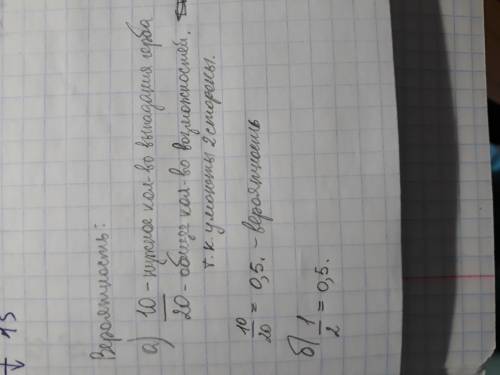 ↓ 13
Вероятность:
а) 10 - нужное кол-во выпадания герба
20 - общее кол-во возможностей.
т.к. у монеты 2 стороны.
10/20 = 0,5. - вероятность
б) 1/2 = 0,5.